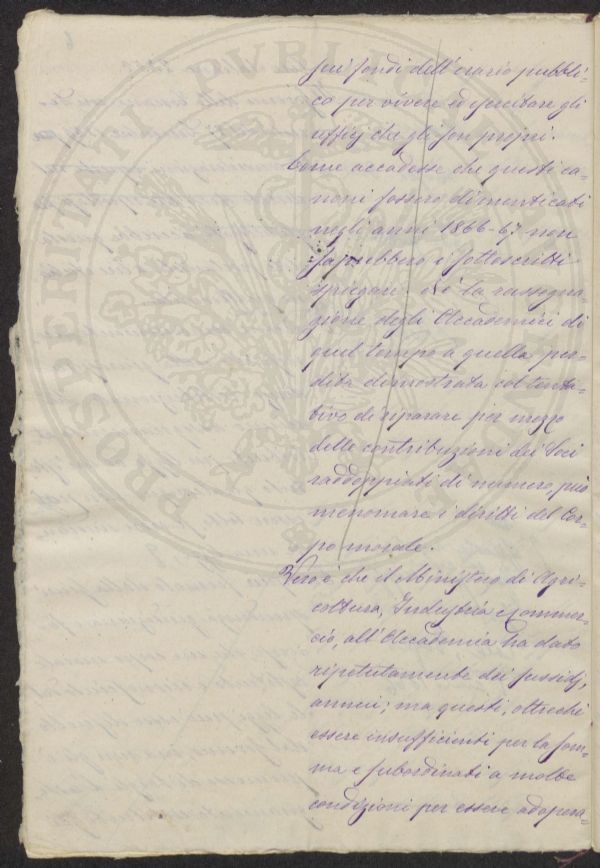 sui fondi dell'erario pubbli-
co per vivere ed esercitare gli
uffizj che gli son proprj.
Come accadesse che questi ca-
noni fossero dimenticati
negli anni 1866-67 non
saprebbero i sottoscritti
spiegare. Nè la rassegna-
zione degli Accademici di
quel tempo a quella per-
dita dimostrata col tenta-
tivo di riparare per mezzo
delle contribuzioni dei Soci
raddoppiati di numero, può
menomare i diritti del Cor-
po morale.
Vero è che il Ministero di Agri-
coltura, Industria e Commer-
cio, all'Accademia ha dato
ripetutamente dei sussidj
annui; ma questi, oltrechè
essere insufficienti per la som-
ma e subordinati a molte
condizioni per essere adopera-
PROSPERITATI PVBLI